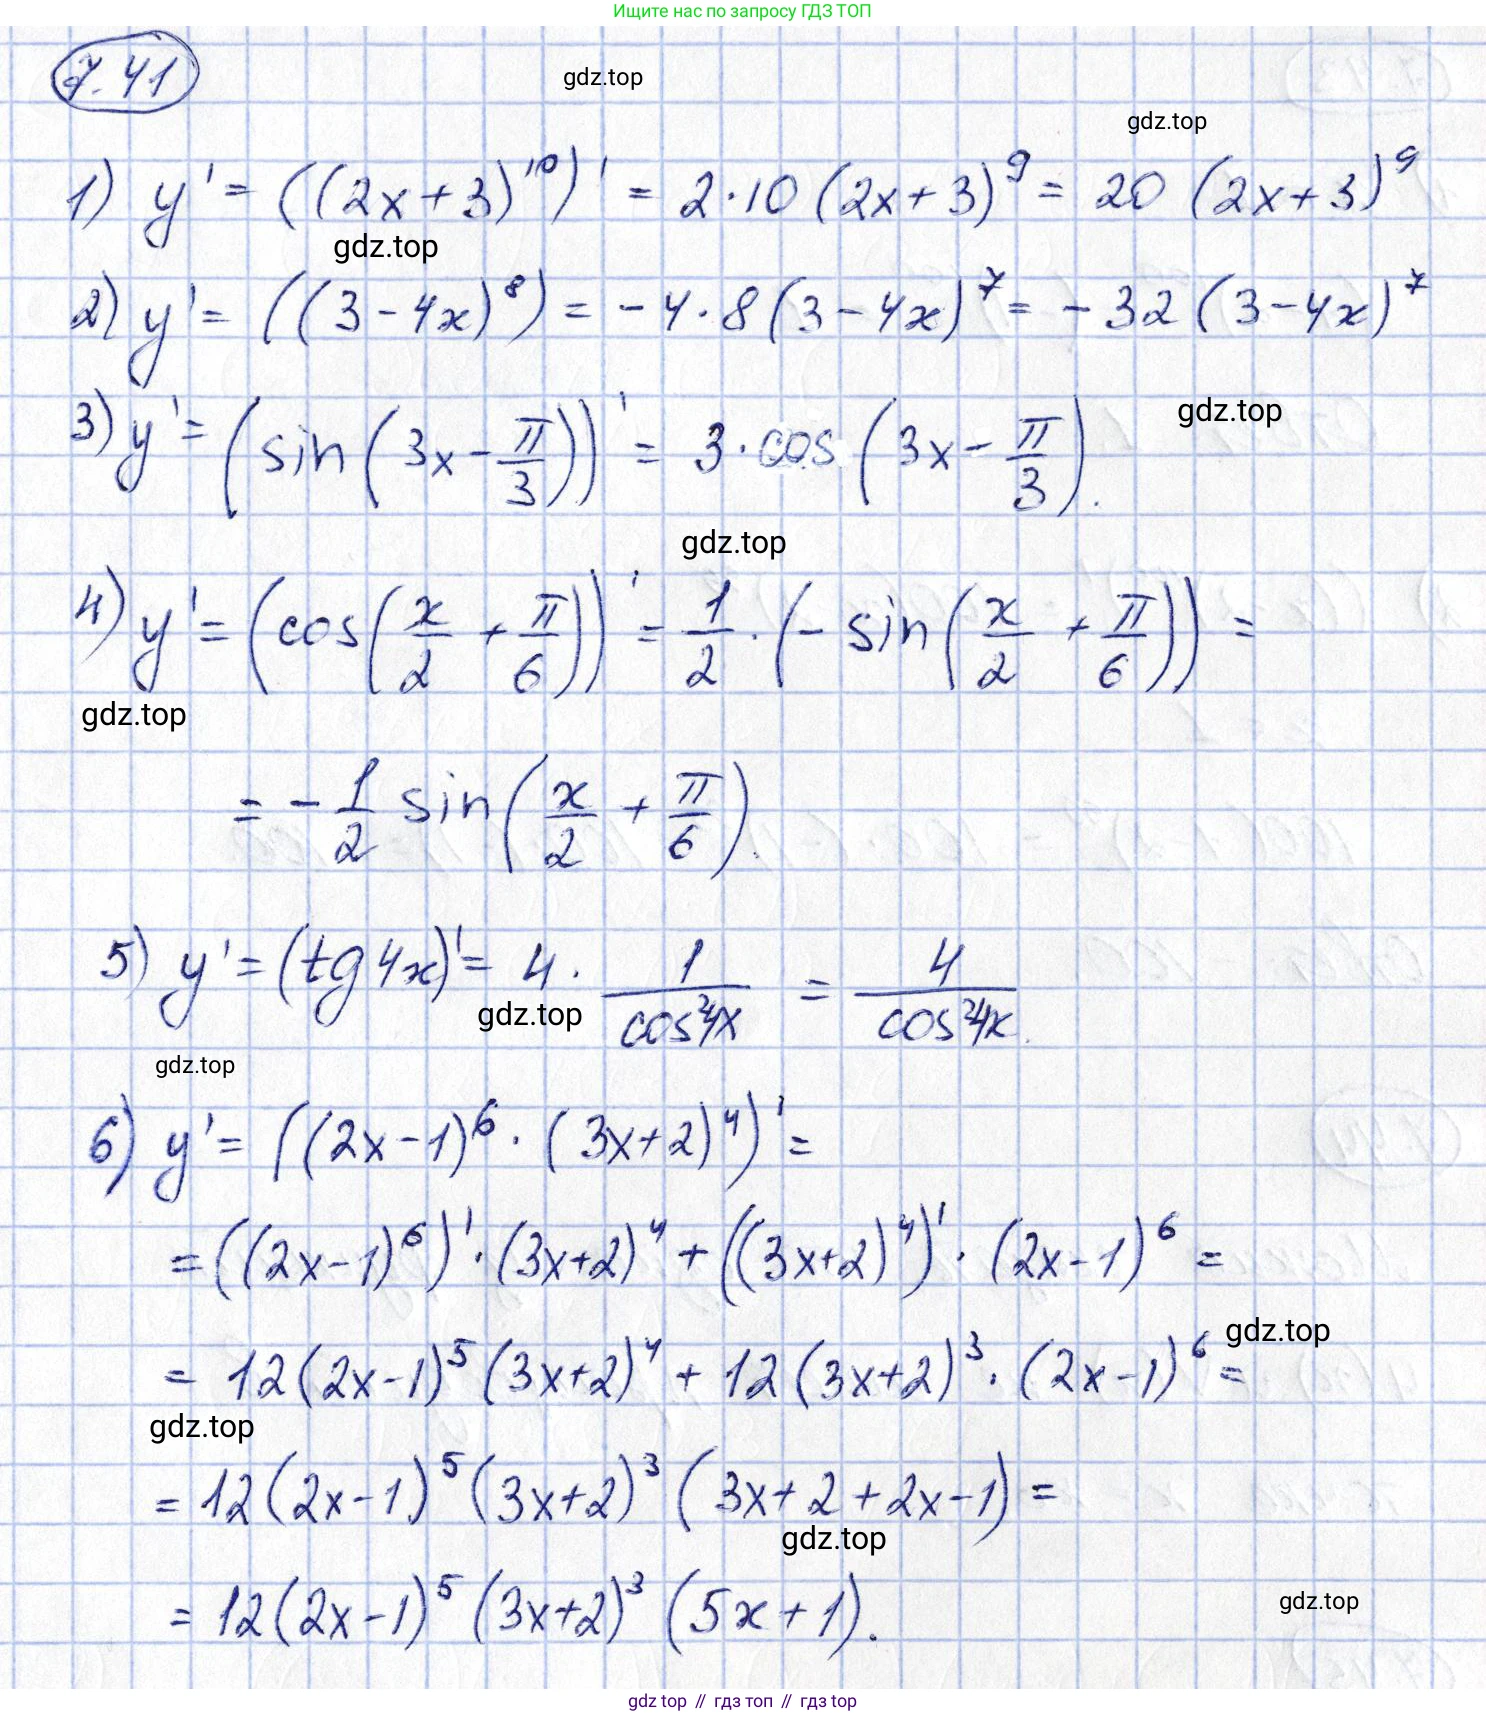 Ищите нас по запросу ГДЗ ТОП
7.41
gdz.top
gdz.top
1) y' = ((2x+3)^10)' = 2·10(2x+3)^9 = 20(2x+3)^9
gdz.top
2) y' = ((3-4x)^8) = -4·8(3-4x)^7 = -32(3-4x)^7
3) y' = (sin(3x-π/3))' = 3·cos(3x-π/3).
gdz.top
gdz.top
4) y' = (cos(x/2+π/6))' = 1/2·(-sin(x/2+π/6)) =
gdz.top
= -1/2 sin(x/2+π/6).
5) y' = (tg4x)' = 4·1/cos²4x = 4/cos²4x.
gdz.top
gdz.top
6) y' = ((2x-1)^6·(3x+2)^4)' =
= ((2x-1)^6)'·(3x+2)^4+((3x+2)^4)'·(2x-1)^6 =
gdz.top
= 12(2x-1)^5(3x+2)^4+12(3x+2)^3·(2x-1)^6 =
gdz.top
= 12(2x-1)^5(3x+2)^3(3x+2+2x-1) =
gdz.top
= 12(2x-1)^5(3x+2)^3(5x+1).
gdz.top
gdz top // гдз топ // gdz.top